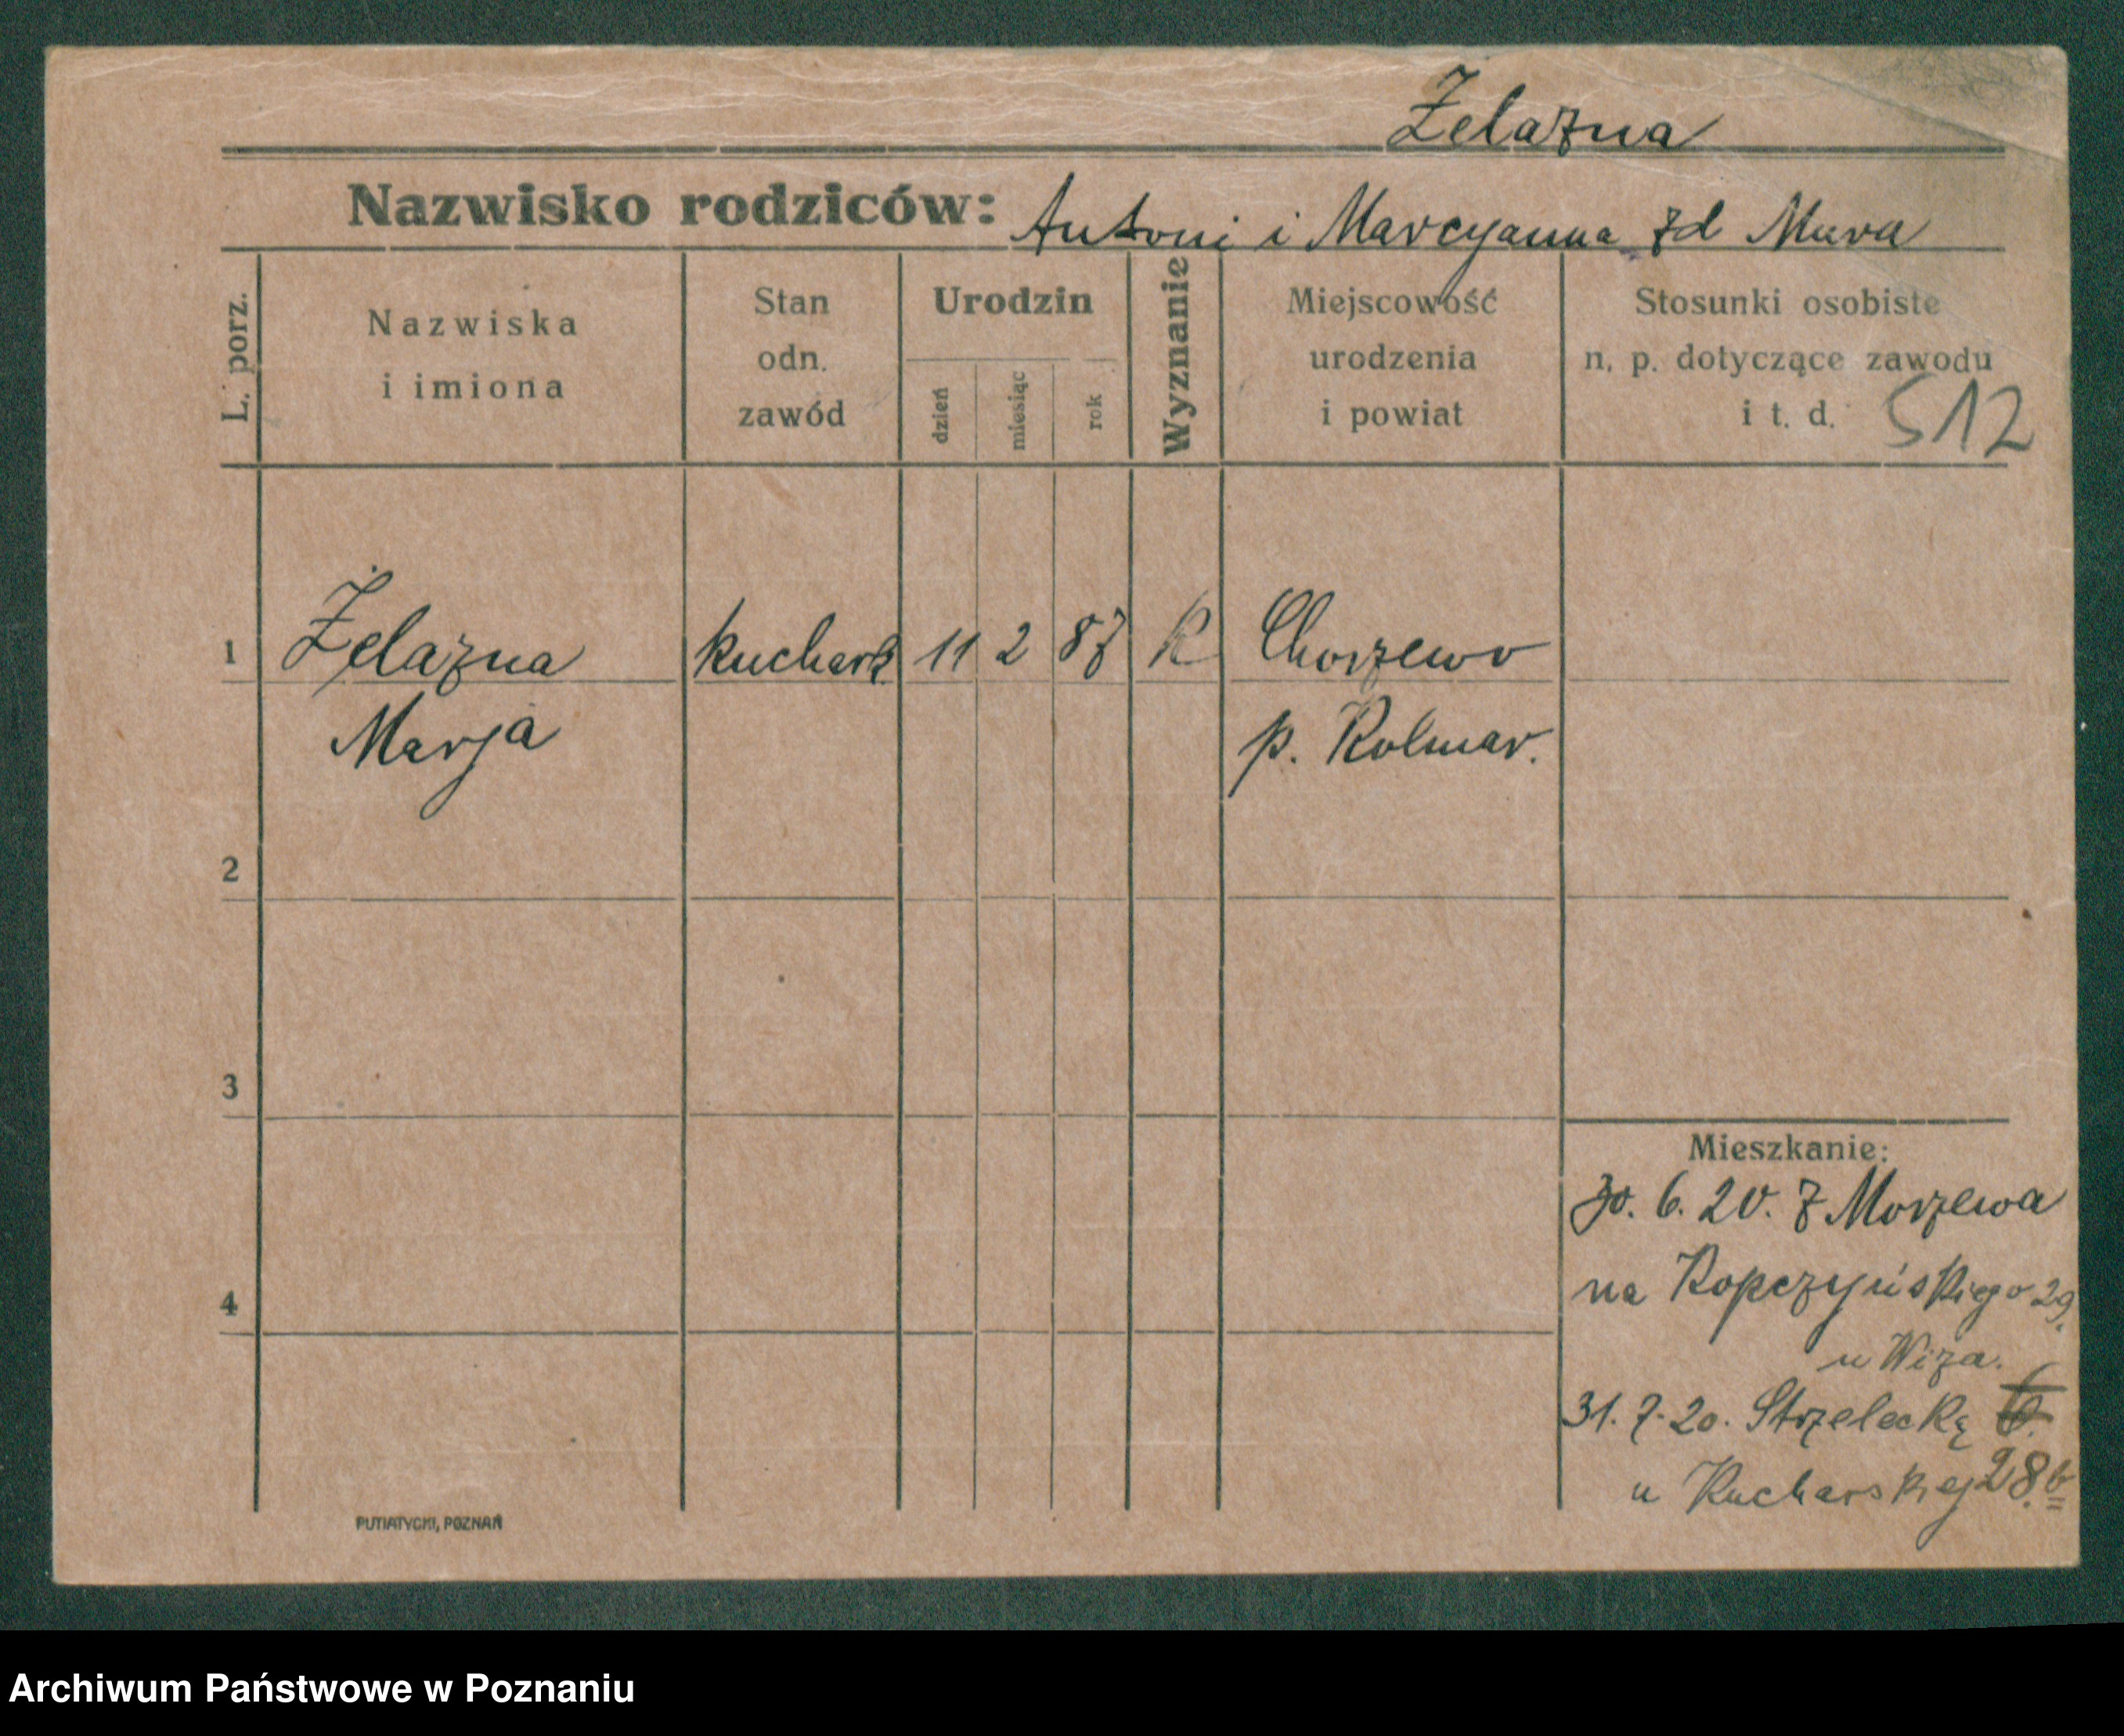 Żelazna
Nazwisko rodziców: Antoni i Marcyanna zd Mura
L. porz.
Nazwiska
i imiona
Stan
odn.
zawód
Urodzin
dzień
miesiąc
rok
Wyznanie
Miejscowość
urodzenia
i powiat
Stosunki osobiste
n. p. dotyczące zawodu
i t. d.
512
1 Żelazna kuchark 11 2 87 K Chorzewo
Marja p. Kolmar.
2
3
4
Mieszkanie:
30. 6. 20. z Morzewa
na Kopczyńskiego 29.
u Wiza.
31. 7. 20. Strzelecką
u Kucharskiej 28b
PUTIATYCKI, POZNAŃ
Archiwum Państwowe w Poznaniu